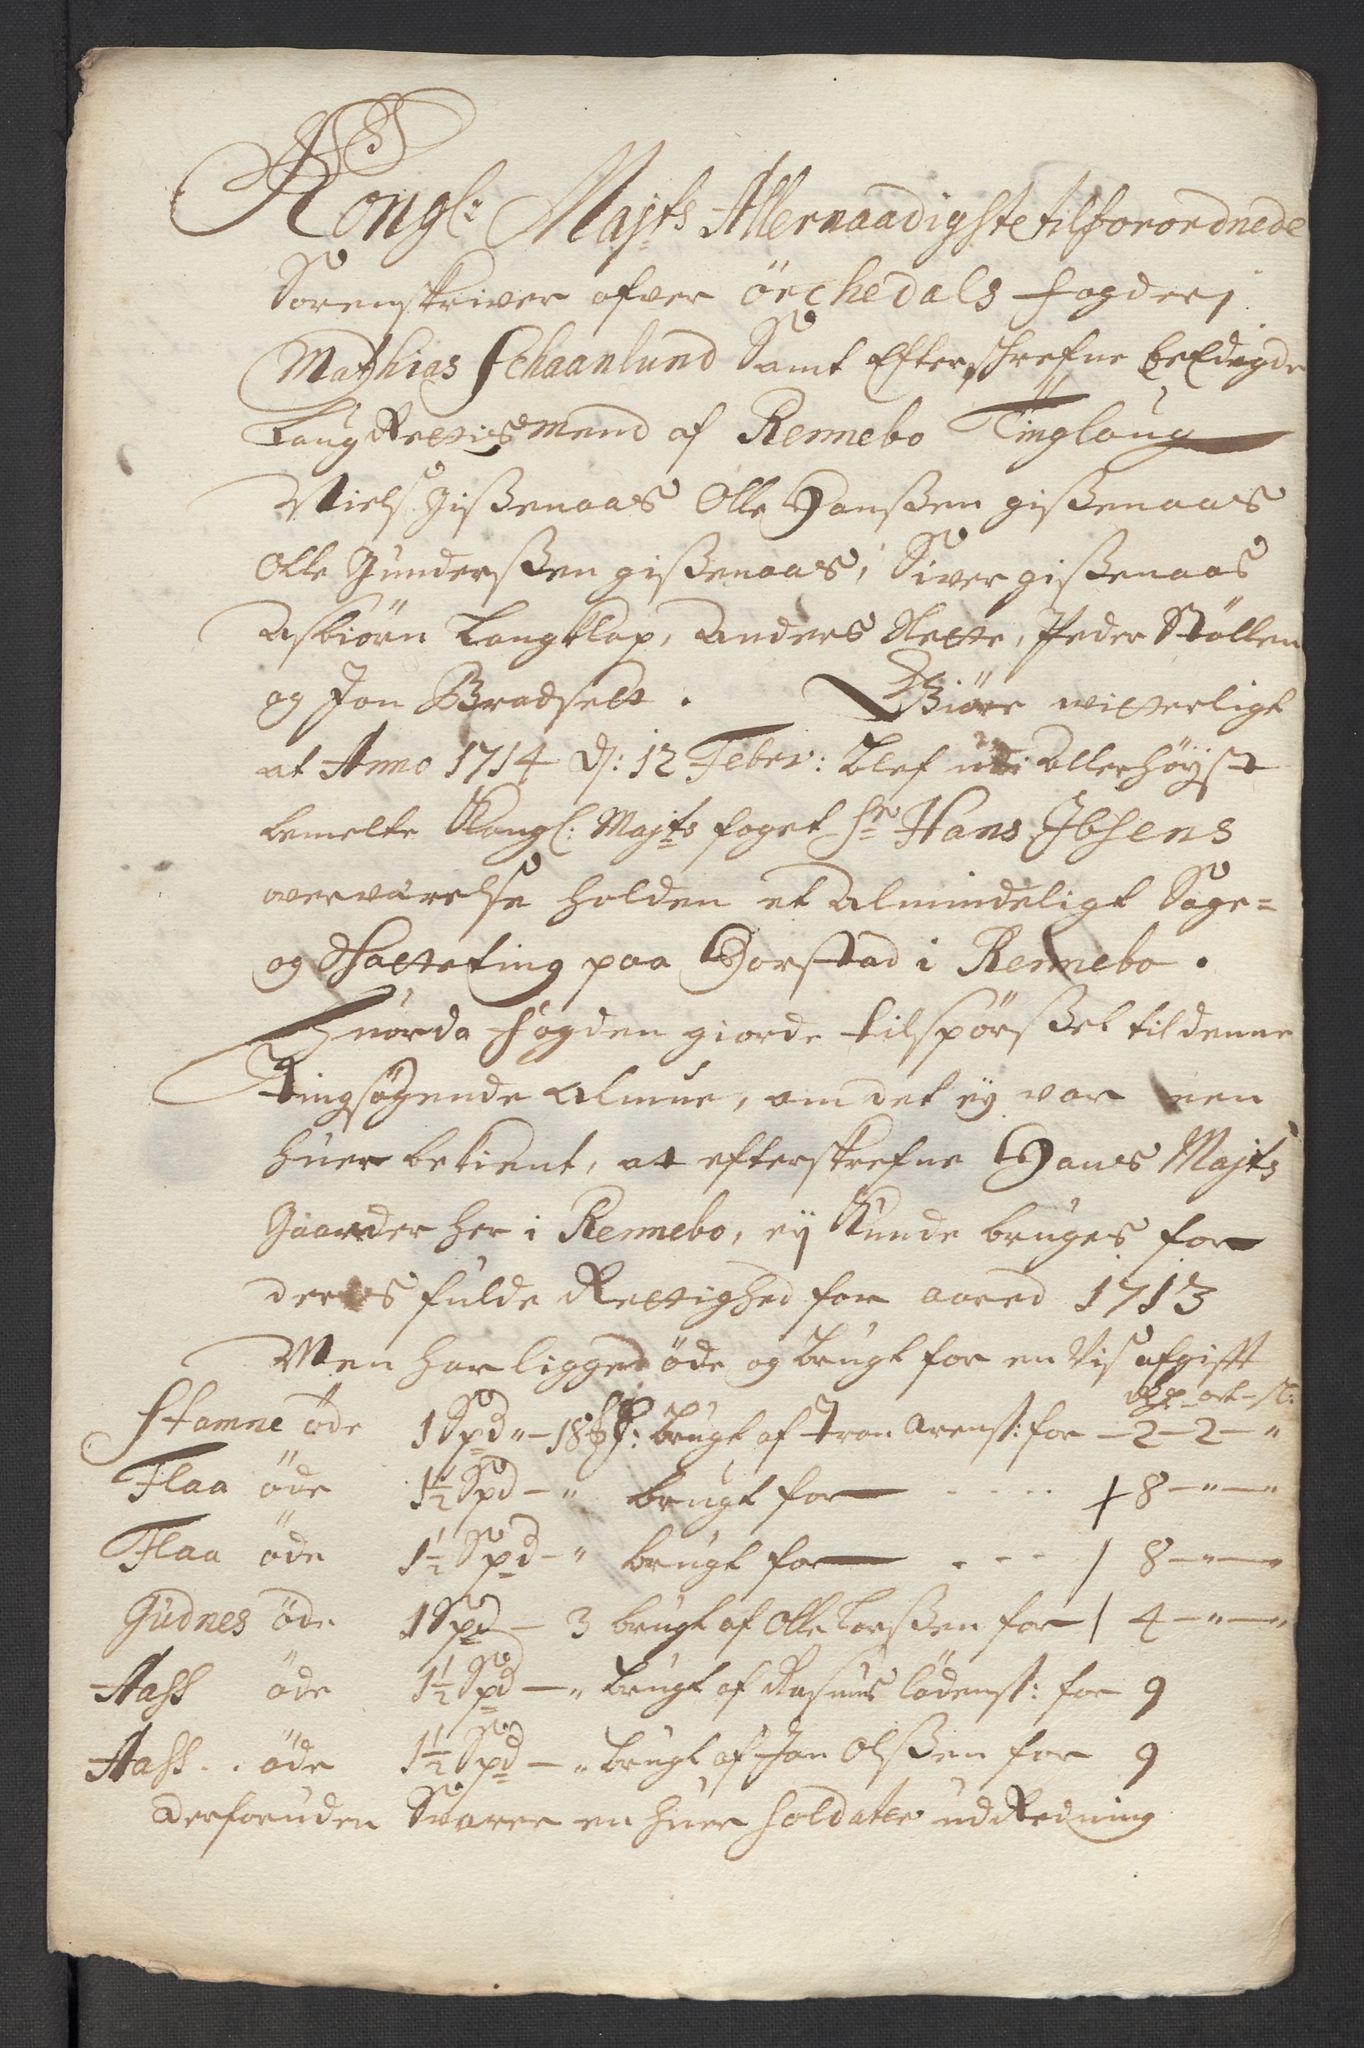 Kongl: Majts Allernaadigste tilforordnede
Sorenskriver ofver Örchedals fogderj
Mathias Schaanlund Samt Efterschrefne beEdigde
LaugRettismend af Rennebo Tinglaug
Niels gißenaas Olle Hanßen gißenaas
Olle Gunderßen gißenaas, Siver gißenaas
Asbiørn Langklop, Anders Slette, Peder Stöllen
og Jon Bradset. Giöre witterligt
at Anno 1714 d: 12 Febr: blef udi Allerhøyst
bemelte Kongl: Majts foget Sr Hans Ibsens
overværelse holden et Almindeligt Sage-
og Skatteting paa Horstad i Rennebo.
Huorda fogden giorde tilspörßel til denne
Tingsøgende Almue, om det ey var een
huer bekient, at efterskrefne Hans Majts
Gaarder her i Rennebo, ey kunde bruges for
deres fulde Rettighed for aared 1713
Men har ligget öde og brugt for en vis afgifft
Rdr ort s:
Stamne öde 1 Spd " - 18 brugt af Tron Arenst: for - 2 - 2 - "
Flaa öde 1½ Spd - " brugt for . . . . 8 - " - "
Flaa öde 1½ Spd - " brugt for . . . 8 - " - "
Gudnes öde 1 Spd - 3 brugt af Olle Larßen for 4 - " - "
Aass öde 1½ Spd - " brugt af Rasmus lödenst: for 9
Aass . . öde 1½ Spd - " brugt af Jon Olßen for 9
Derforuden Svarer en huer Soldater udRedning